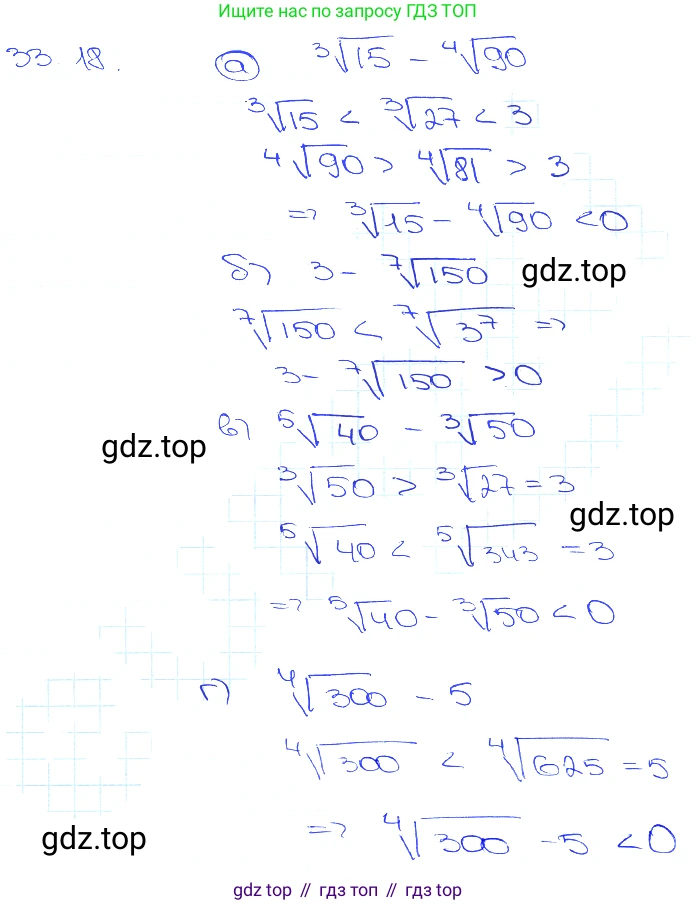 Ищите нас по запросу ГДЗ ТОП
33.18. а) ∛15 − ∜90
∛15 < ∛27 < 3
∜90 > ∜81 > 3
=> ∛15 − ∜90 < 0
б) 3 − ⁷√150
gdz.top
⁷√150 < ⁷√3⁷ =>
3 − ⁷√150 > 0
в) ⁵√40 − ∛50
gdz.top
∛50 > ∛27 = 3
gdz.top
⁵√40 < ⁵√343 = 3
=> ⁵√40 − ∛50 < 0
г) ∜300 − 5
∜300 < ∜625 = 5
gdz.top
=> ∜300 − 5 < 0
gdz top // гдз топ // gdz.top